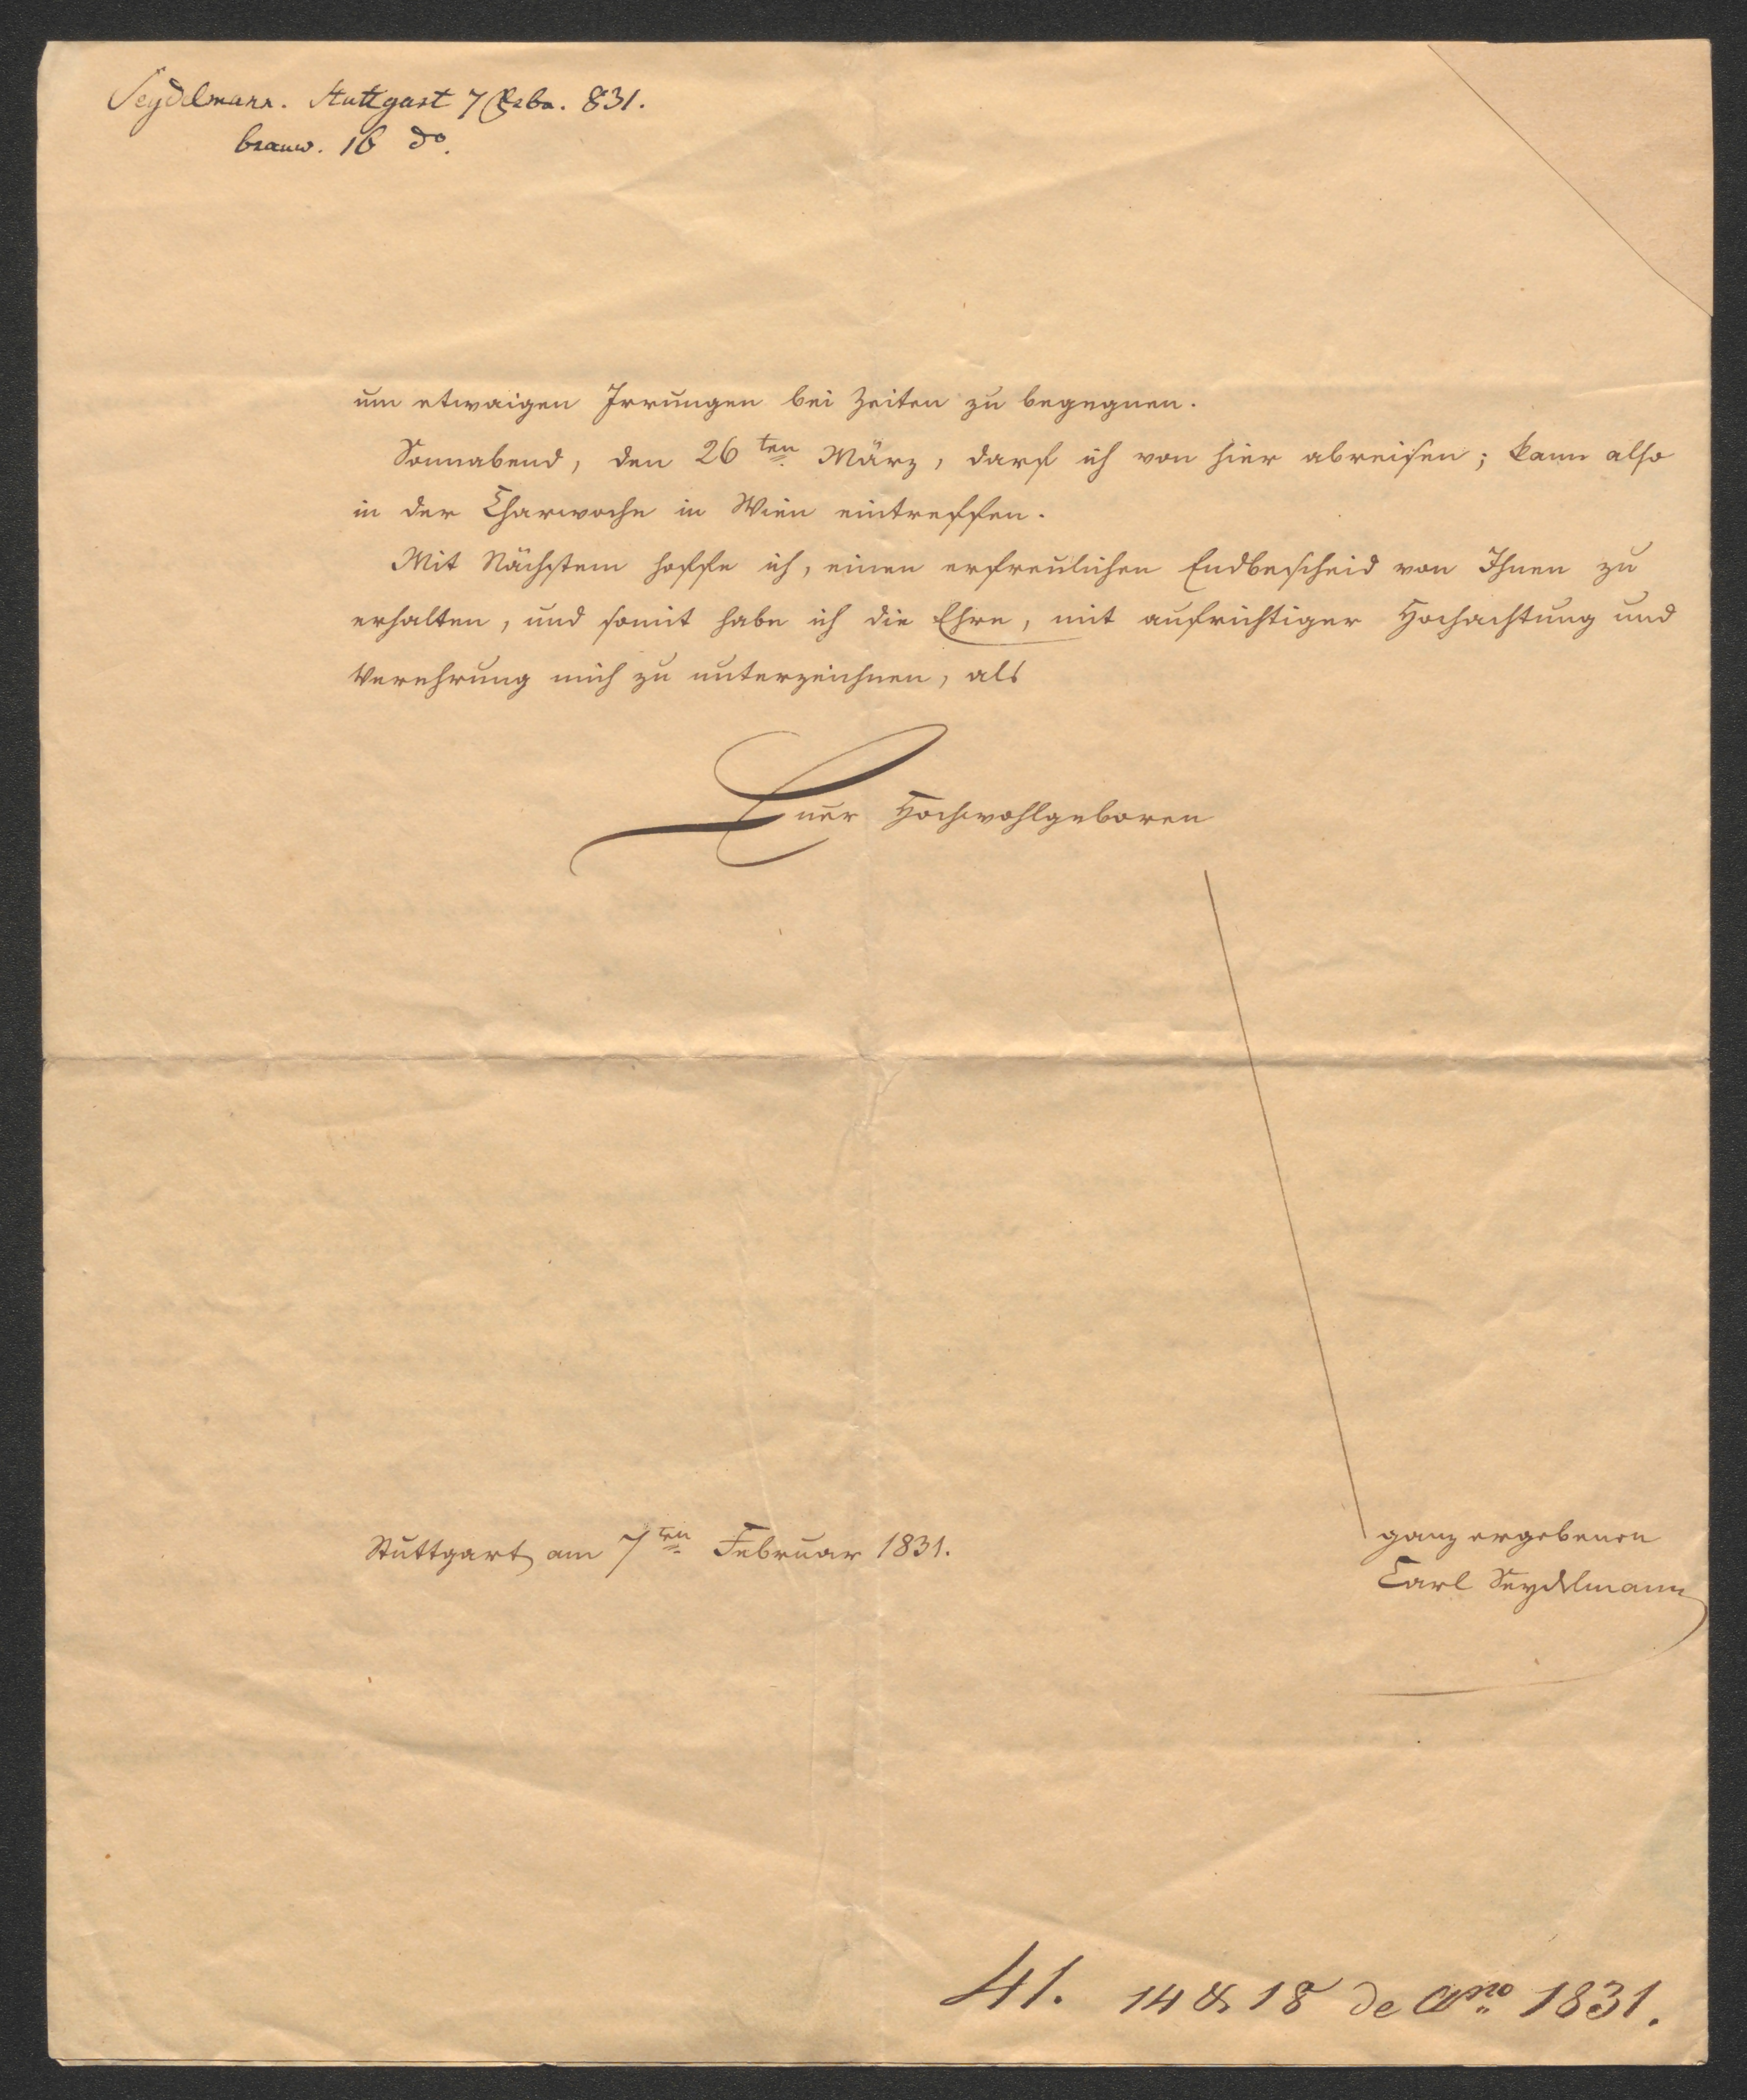 Seydelmann. Stuttgart 7 Febr. 831.
beantw. 16 do.
um etwaigen Irrungen bei Zeiten zu begegnen.
Sonnabend, den 26ten März, darf ich von hier abreisen; kann also
in der Charwoche in Wien eintreffen.
Mit Nächstem hoffe ich, einen erfreulichen Endbescheid von Ihnen zu
erhalten, und somit habe ich die Ehre, mit aufrichtiger Hochachtung und
Verehrung mich zu unterzeichnen, als
Euer Hochwohlgeboren
ganz ergebenen
Stuttgart am 7ten Februar 1831.
Carl Seydelmann
41. 14 & 18 de Ao 1831.